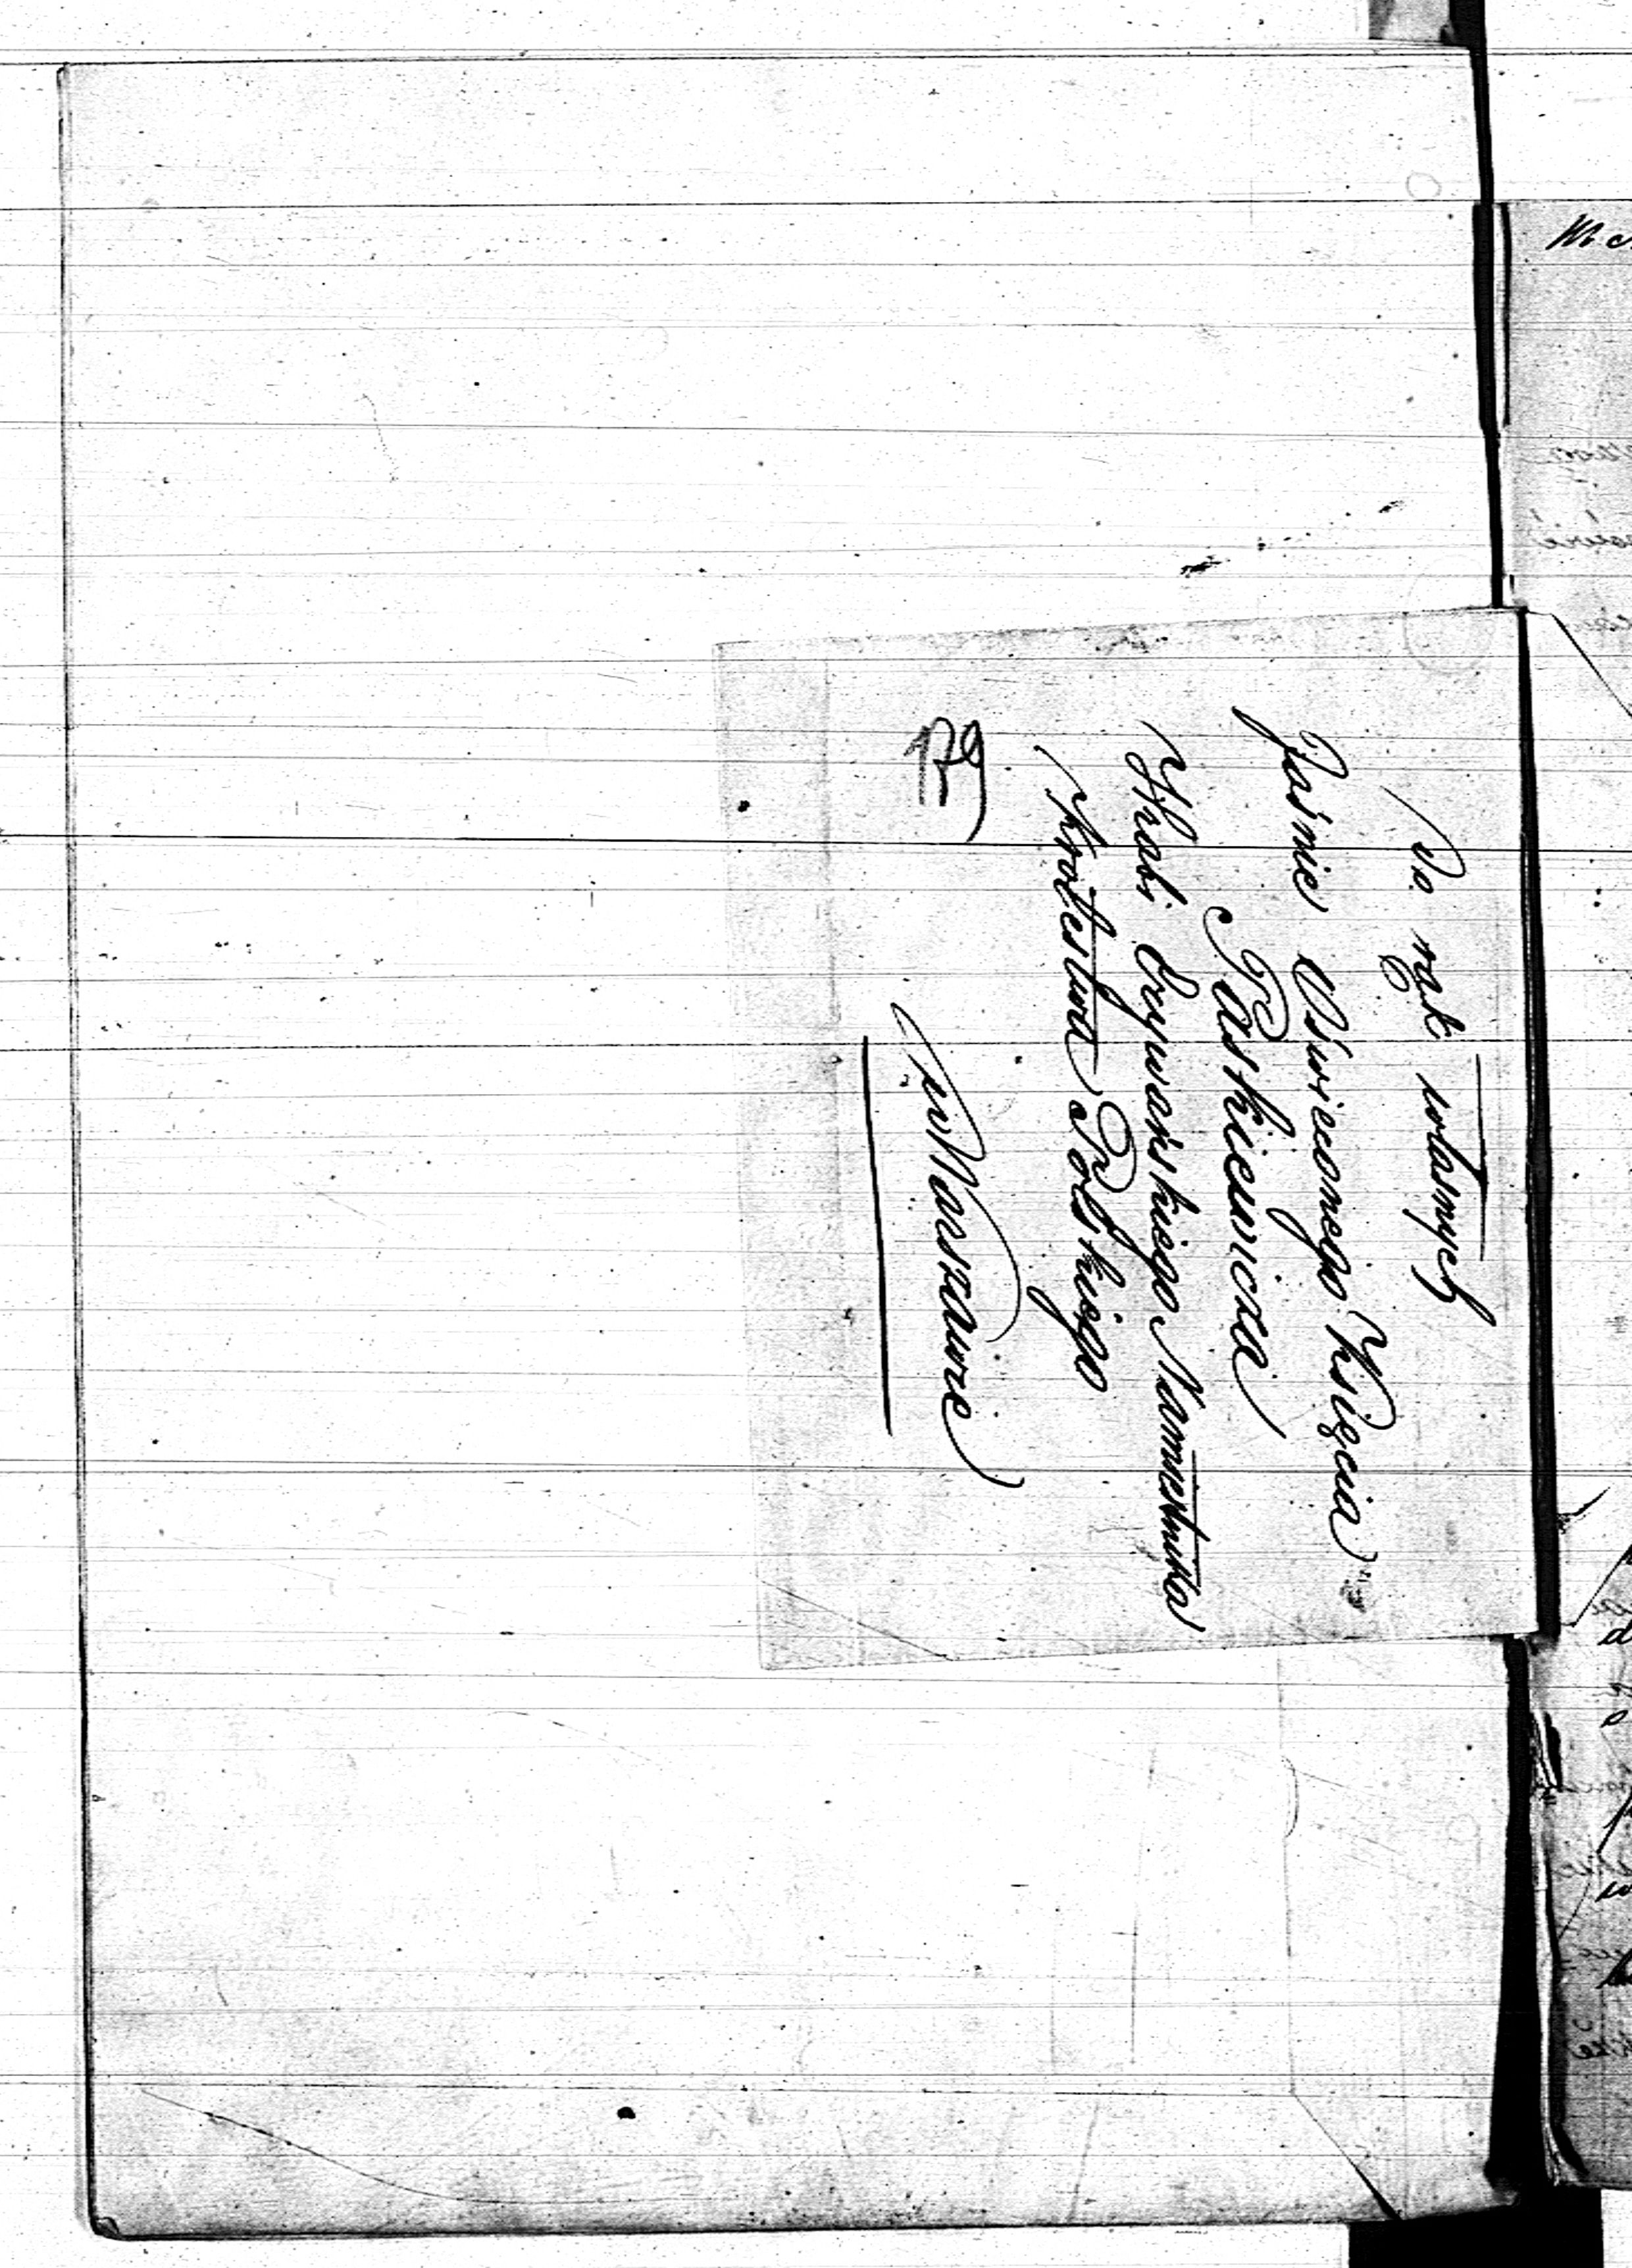 Do rąk własnych
Jaśnie Oświeconego Księcia
Paskiewicza
Hrabi Erywańskiego Namiestnika
Królestwa Polskiego
w Warszawie
179